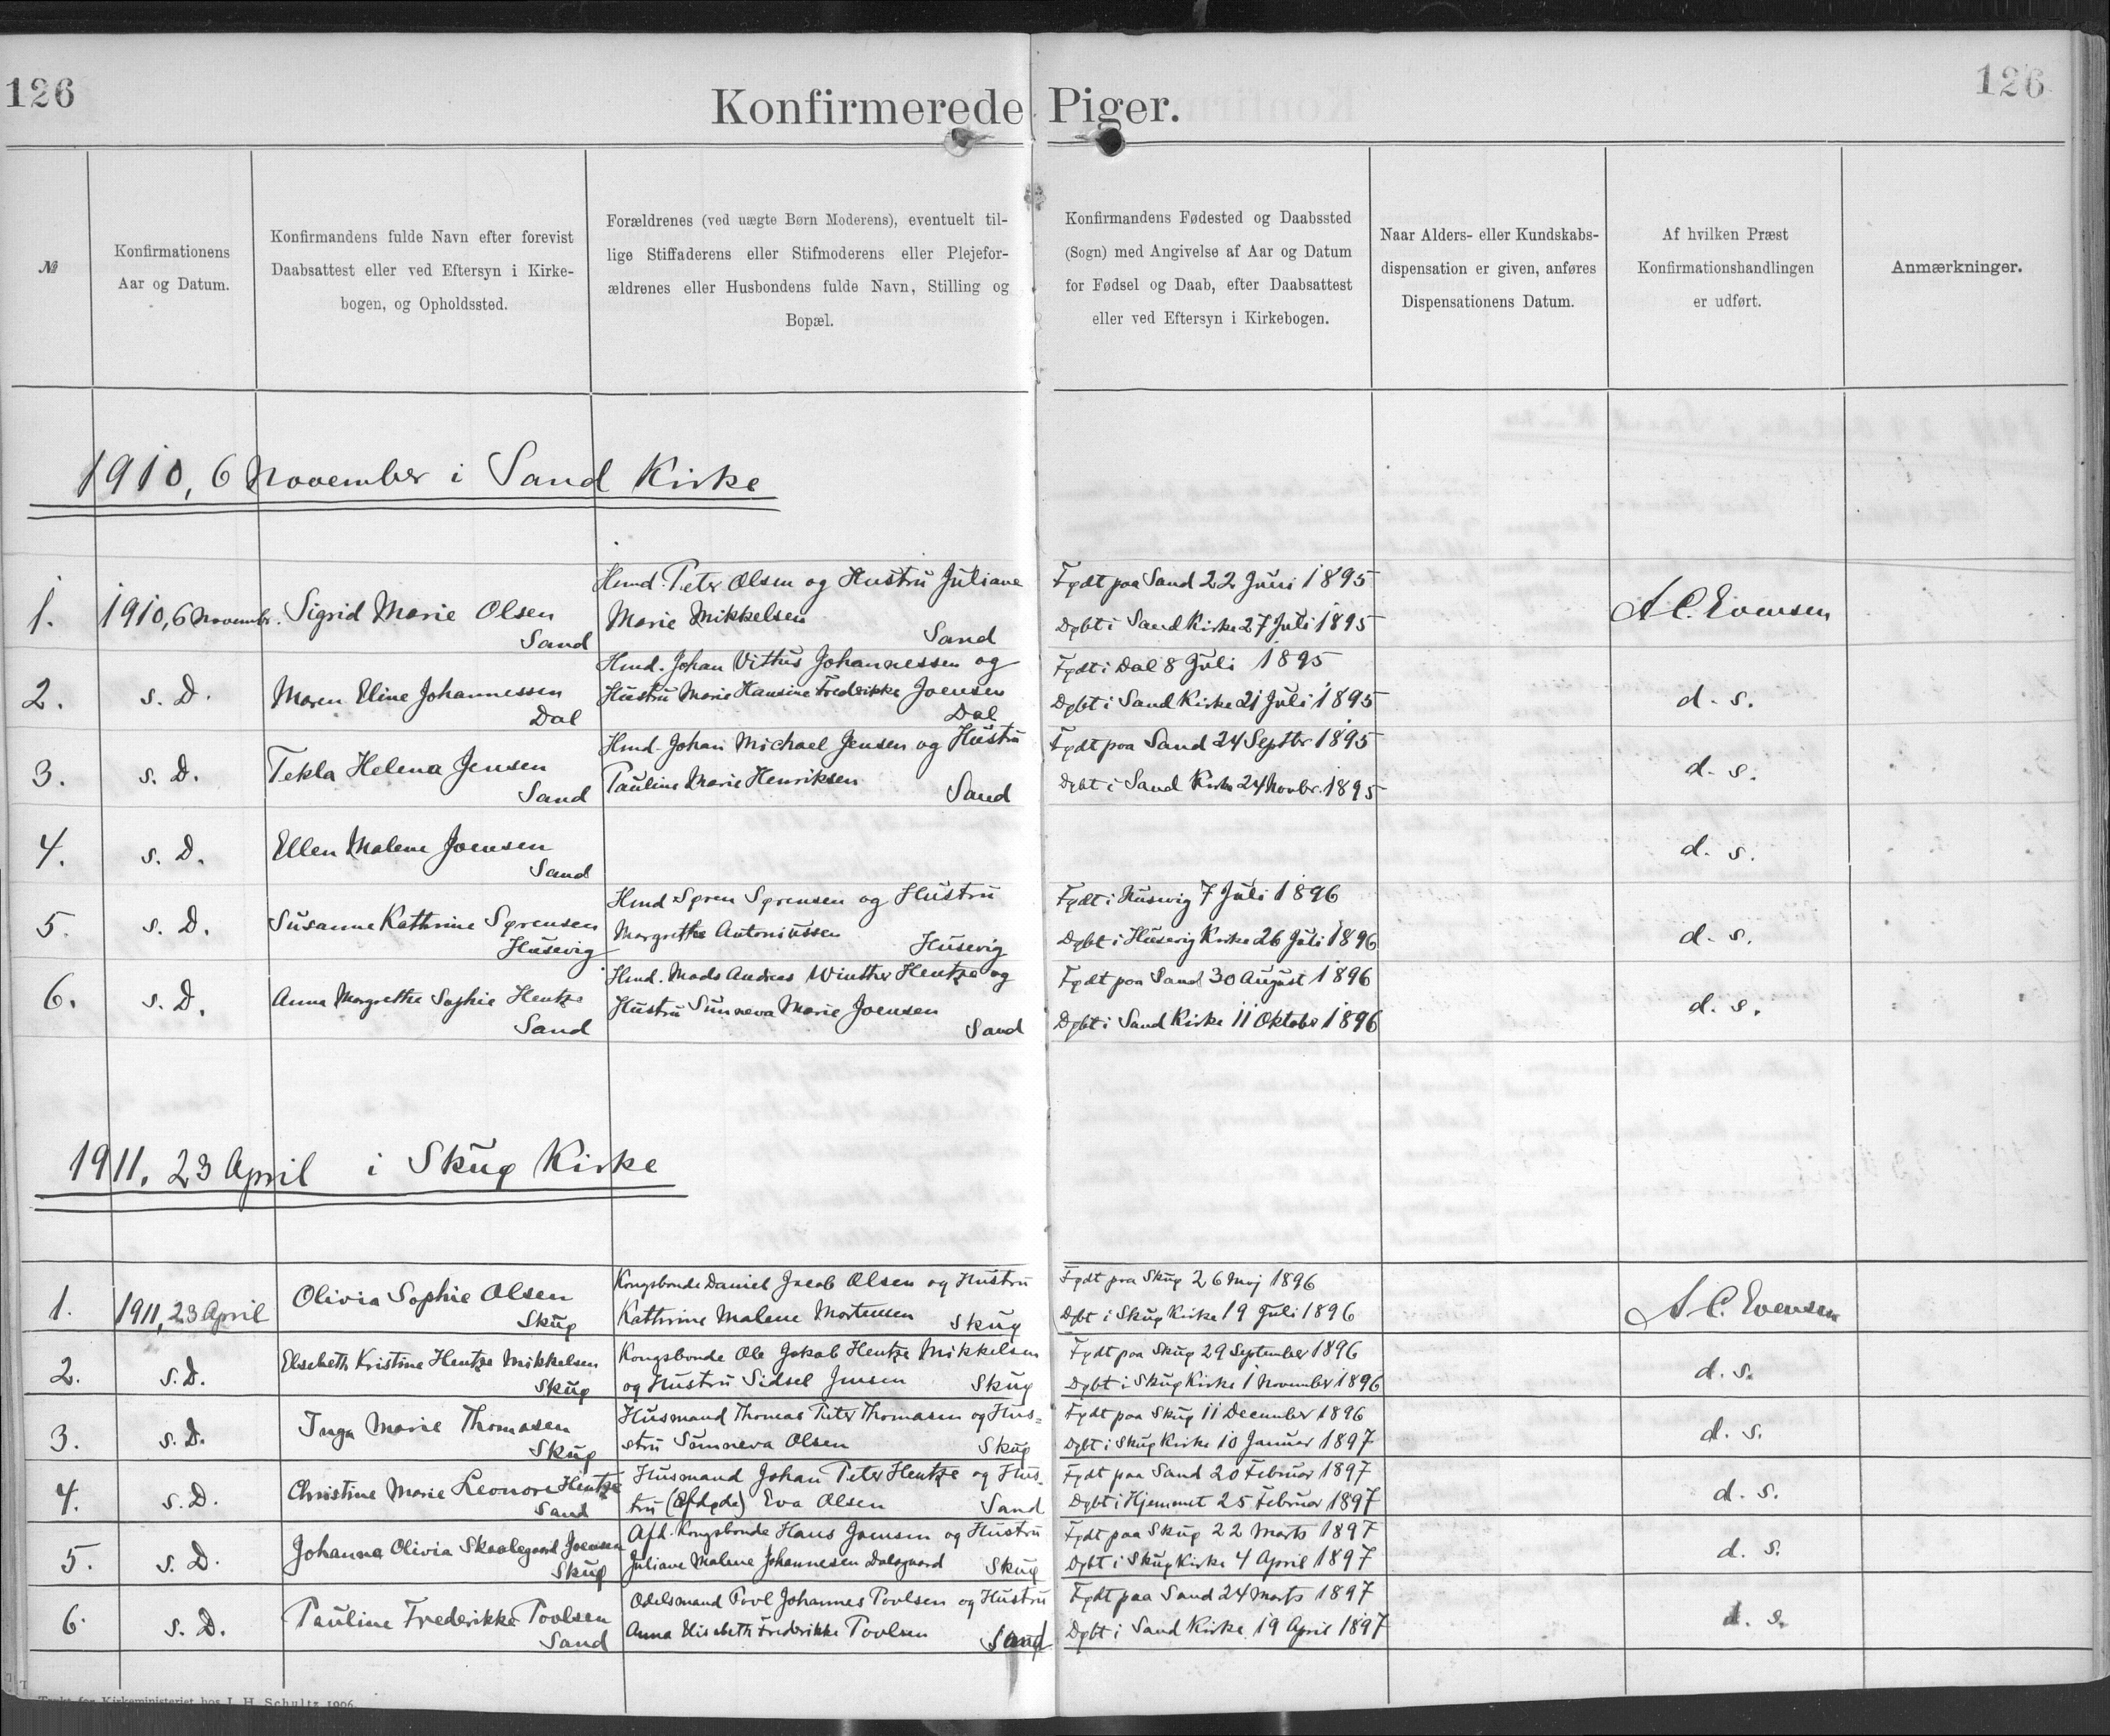 126
126
Konfirmerede Piger.
№
Konfirmationens
Aar og Datum.
Konfirmandens fulde Navn efter forevist
Daabsattest eller ved Eftersyn i Kirke-
bogen, og Opholdssted.
Forældrenes (ved uægte Børn Moderens), eventuelt til-
lige Stiffaderens eller Stifmoderens eller Plejefor-
ældrenes eller Husbondens fulde Navn, Stilling og
Bopæl.
Konfirmandens Fødested og Daabssted
(Sogn) med Angivelse af Aar og Datum
for Fødsel og Daab, efter Daabsattest
eller ved Eftersyn i Kirkebogen.
Naar Alders- eller Kundskabs-
dispensation er given, anføres
Dispensationens Datum.
Af hvilken Præst
Konfirmationshandlingen
er udført.
Anmærkninger.
1910, 6 November i Sand Kirke
1.
1910, 6 Novembr.
Sigrid Marie Olsen
Sand
Hmd. Peter Olsen og Hustru Juliane
Marie Mikkelsen
Sand
Født paa Sand 22 Juni 1895
Døbt i Sand Kirke 27 Juli 1895
A C. Evensen
2.
s. D.
Maren Eline Johannessen
Dal
Hmd. Johan Vittus Johannessen og
Hustru Marie Hansine Frederikke Joensen
Dal
Født i Dal 8 Juli 1895
Døbt i Sand Kirke 21 Juli 1895
d. s.
3.
s. D.
Tekla Helena Jensen
Sand
Hmd. Johan Michael Jensen og Hustru
Pauline Marie Henriksen
Sand
Født paa Sand 24 Septbr 1895
Døbt i Sand Kirke 24 Novbr. 1895
d. s.
4.
s. D.
Ellen Malene Joensen
Sand
d. s.
5.
s. D.
Susanne Kathrine Sørensen
Husevig
Hmd Søren Sørensen og Hustru
Margrethe Antoniussen
Husevig
Født i Husevig 7 Juli 1896
Døbt i Husevig Kirke 26 Juli 1896
d. s.
6.
s. D.
Anna Margrethe Sophie Hentze
Sand
Hmd. Mads Andreas Winther Hentze og
Hustru Sunneva Marie Joensen
Sand
Født paa Sand 30 August 1896
Døbt i Sand Kirke 11 Oktobr 1896
d. s.
1911, 23 April i Skuø Kirke
1.
1911, 23 April
Olivia Sophie Olsen
Skuø
Kongsbonde Daniel Jacob Olsen og Hustru
Kathrine Malene Mortensen
Skuø
Født paa Skuø 26 Maj 1896
Døbt i Skuø Kirke 19 Juli 1896
A C. Evensen
2.
s. D.
Elsebeth Kristine Hentze Mikkelsen
Skuø
Kongsbonde Ole Jakob Hentze Mikkelsen
og Hustru Sidsel Jensen
Skuø
Født paa Skuø 29 September 1896
Døbt i Skuø Kirke 1 November 1896
d. s.
3.
s. D.
Inga Marie Thomasen
Skuø
Husmand Thomas Peter Thomasen og Hus=
stru Sunneva Olsen
Skuø
Født paa Skuø 11 December 1896
Døbt i Skuø Kirke 10 Januar 1897
d. s.
4.
s. D.
Christine Marie Leonore Hentze
Sand
Husmand Johan Peter Hentze og Hus-
tru (Afdøde) Eva Olsen
Sand
Født paa Sand 20 Februar 1897
Døbt i Hjemmet 25 Februar 1897
d. s.
5.
s. D.
Johanna Olivia Skaalegaard Joensen
Skuø
Afd. Kongsbonde Hans Joensen og Hustru
Juliane Malene Johannesen Dalsgaard
Skuø
Født paa Skuø 22 Marts 1897
Døbt i Skuø Kirke 4 April 1897
d. s.
6.
s. D.
Pauline Frederikke Poulsen
Sand
Odelsmand Poul Johannes Poulsen og Hustru
Anna Elisabeth Frederikke Poulsen
Sand
Født paa Sand 24 Marts 1897
Døbt i Sand Kirke 19 April 1897
d. s.